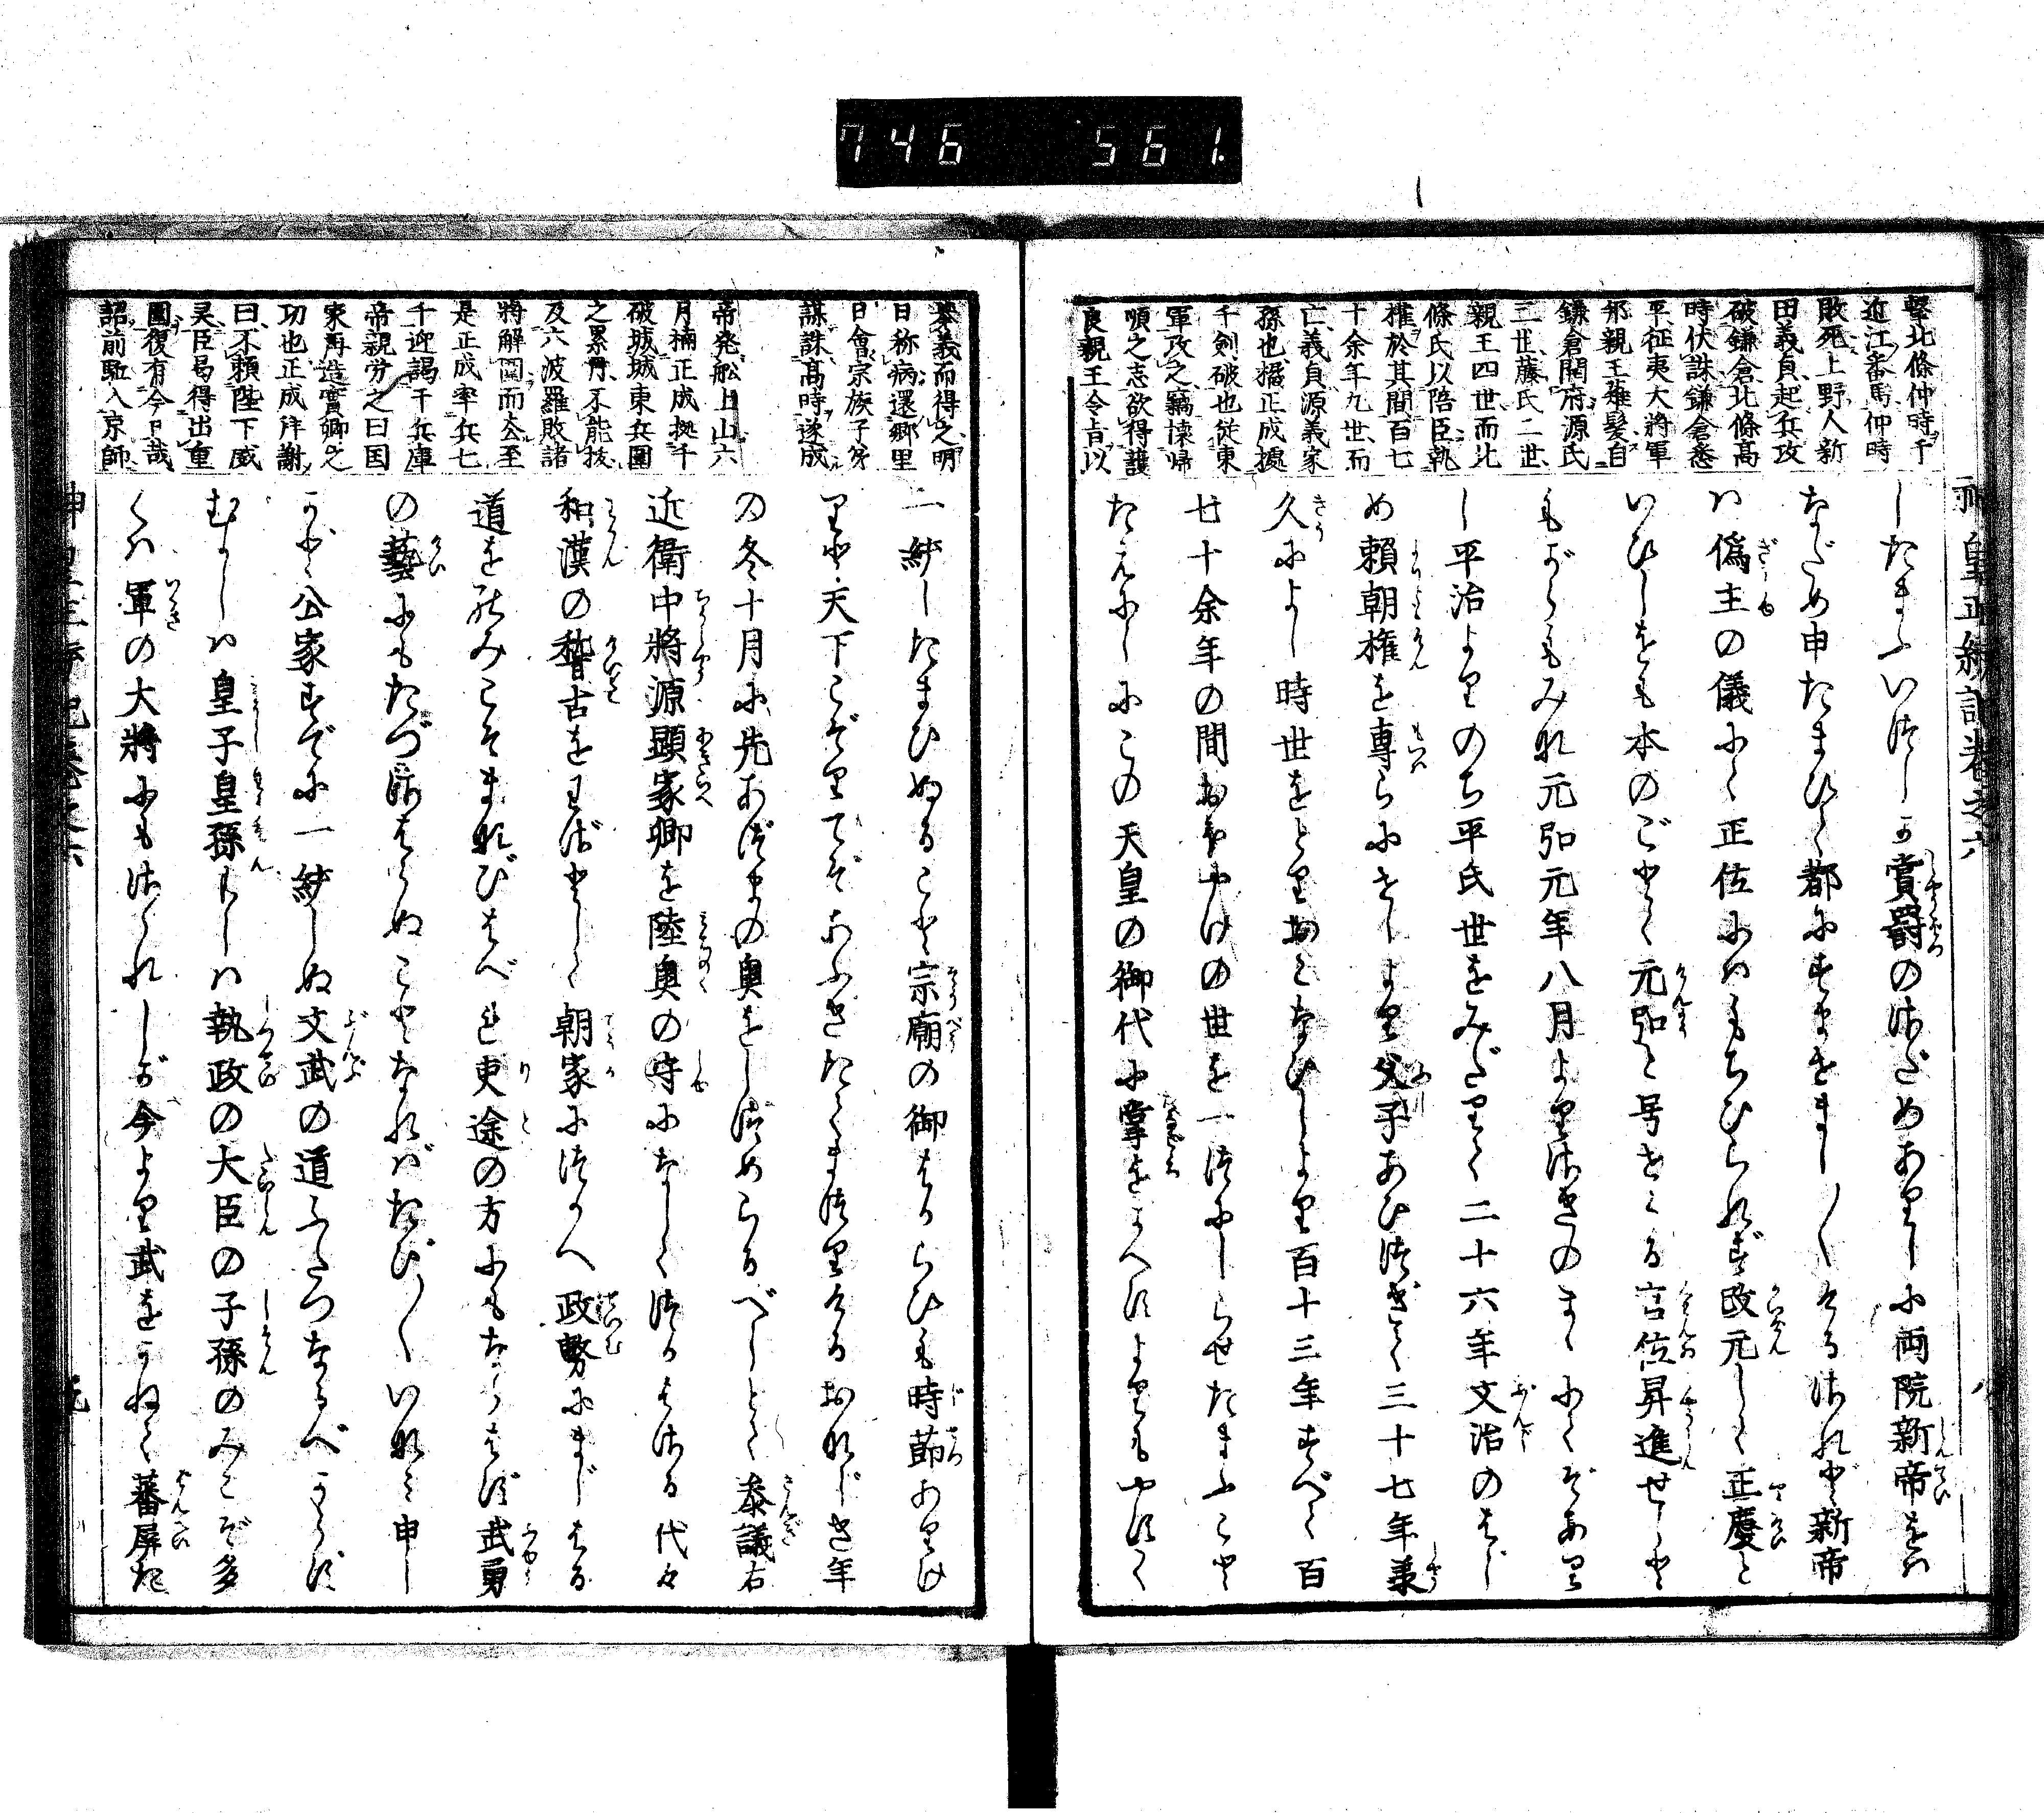 746 561.
撃北條仲時于
近江番馬仲時
敗死上野人新
田義貞起兵攻
破鎌倉北條高
時伏誅鎌倉悉
平征夷大将軍
邦親王薙髪自
鎌倉開府源氏
三世藤氏二世
親王四世而北
條氏以陪臣執
権於其間百七
十余年九世而
亡義貞源義家
孫也楯正成據
千劍破也従東
軍攻之竊懐帰
順之志欲得護
良親王令旨以
したまふいづしか賞爵のさだめありしに両院新帝をハ
なだめ申たまひて都にすませましましけるされど新帝
ハ偽主の儀にて正位にハもちひられず改元して正慶と
いひしをも本のごとく元弘と号せらる官位昇進せしと
もがらもみな元弘元年八月よりさきのまゝにてぞあり
し平治よりのち平氏世をみだりて二十六年文治のはじ
め頼朝権を専らにせしより父子あひつぎて三十七年義
久によし時世をとりおこなひしより百十三年すべて百
七十余年の間おほやけの世を一つにしらせたまふこと
たえにしにこの天皇の御代に掌をかへすよりもやすく
挙義而得之明
日称病還郷里
日會宗族子弟
謀誅高時遂成
帝発舩上山六
月楠正成拠千
破城城東兵圍
之累月不能抜
及六波羅敗諸
將解圍而去至
是正成率兵七
千迎謁于兵庫
帝親労之曰国
家再造實卿之
功也正成拝謝
曰不頼陛下威
灵臣曷得出重
圍復有今日哉
詔前駈入京師
一統したまひぬること宗廟の御はからひも時莭ありけ
りと天下こぞりてぞあふぎたてまつりけるおなじき年
の冬十月に先あづまの奥をしづめらるべしとて参議右
近衛中將源顕家卿を陸奥の守になしてつかはさる代々
和漢の稽古をわざとして朝家につかへ政務にまじはる
道をのみこそまなびはべれ吏途の方にもならはず武勇
の藝にもたづさはらぬことなればたびたびいなミ申し
かど公家すでに一統しぬ文武の道ふたつなるべからず
むかしハ皇子皇孫もしハ執政の大臣の子孫のみこそ多
くハ軍の大將にもさゝれしが今より武をかねて蕃屏た